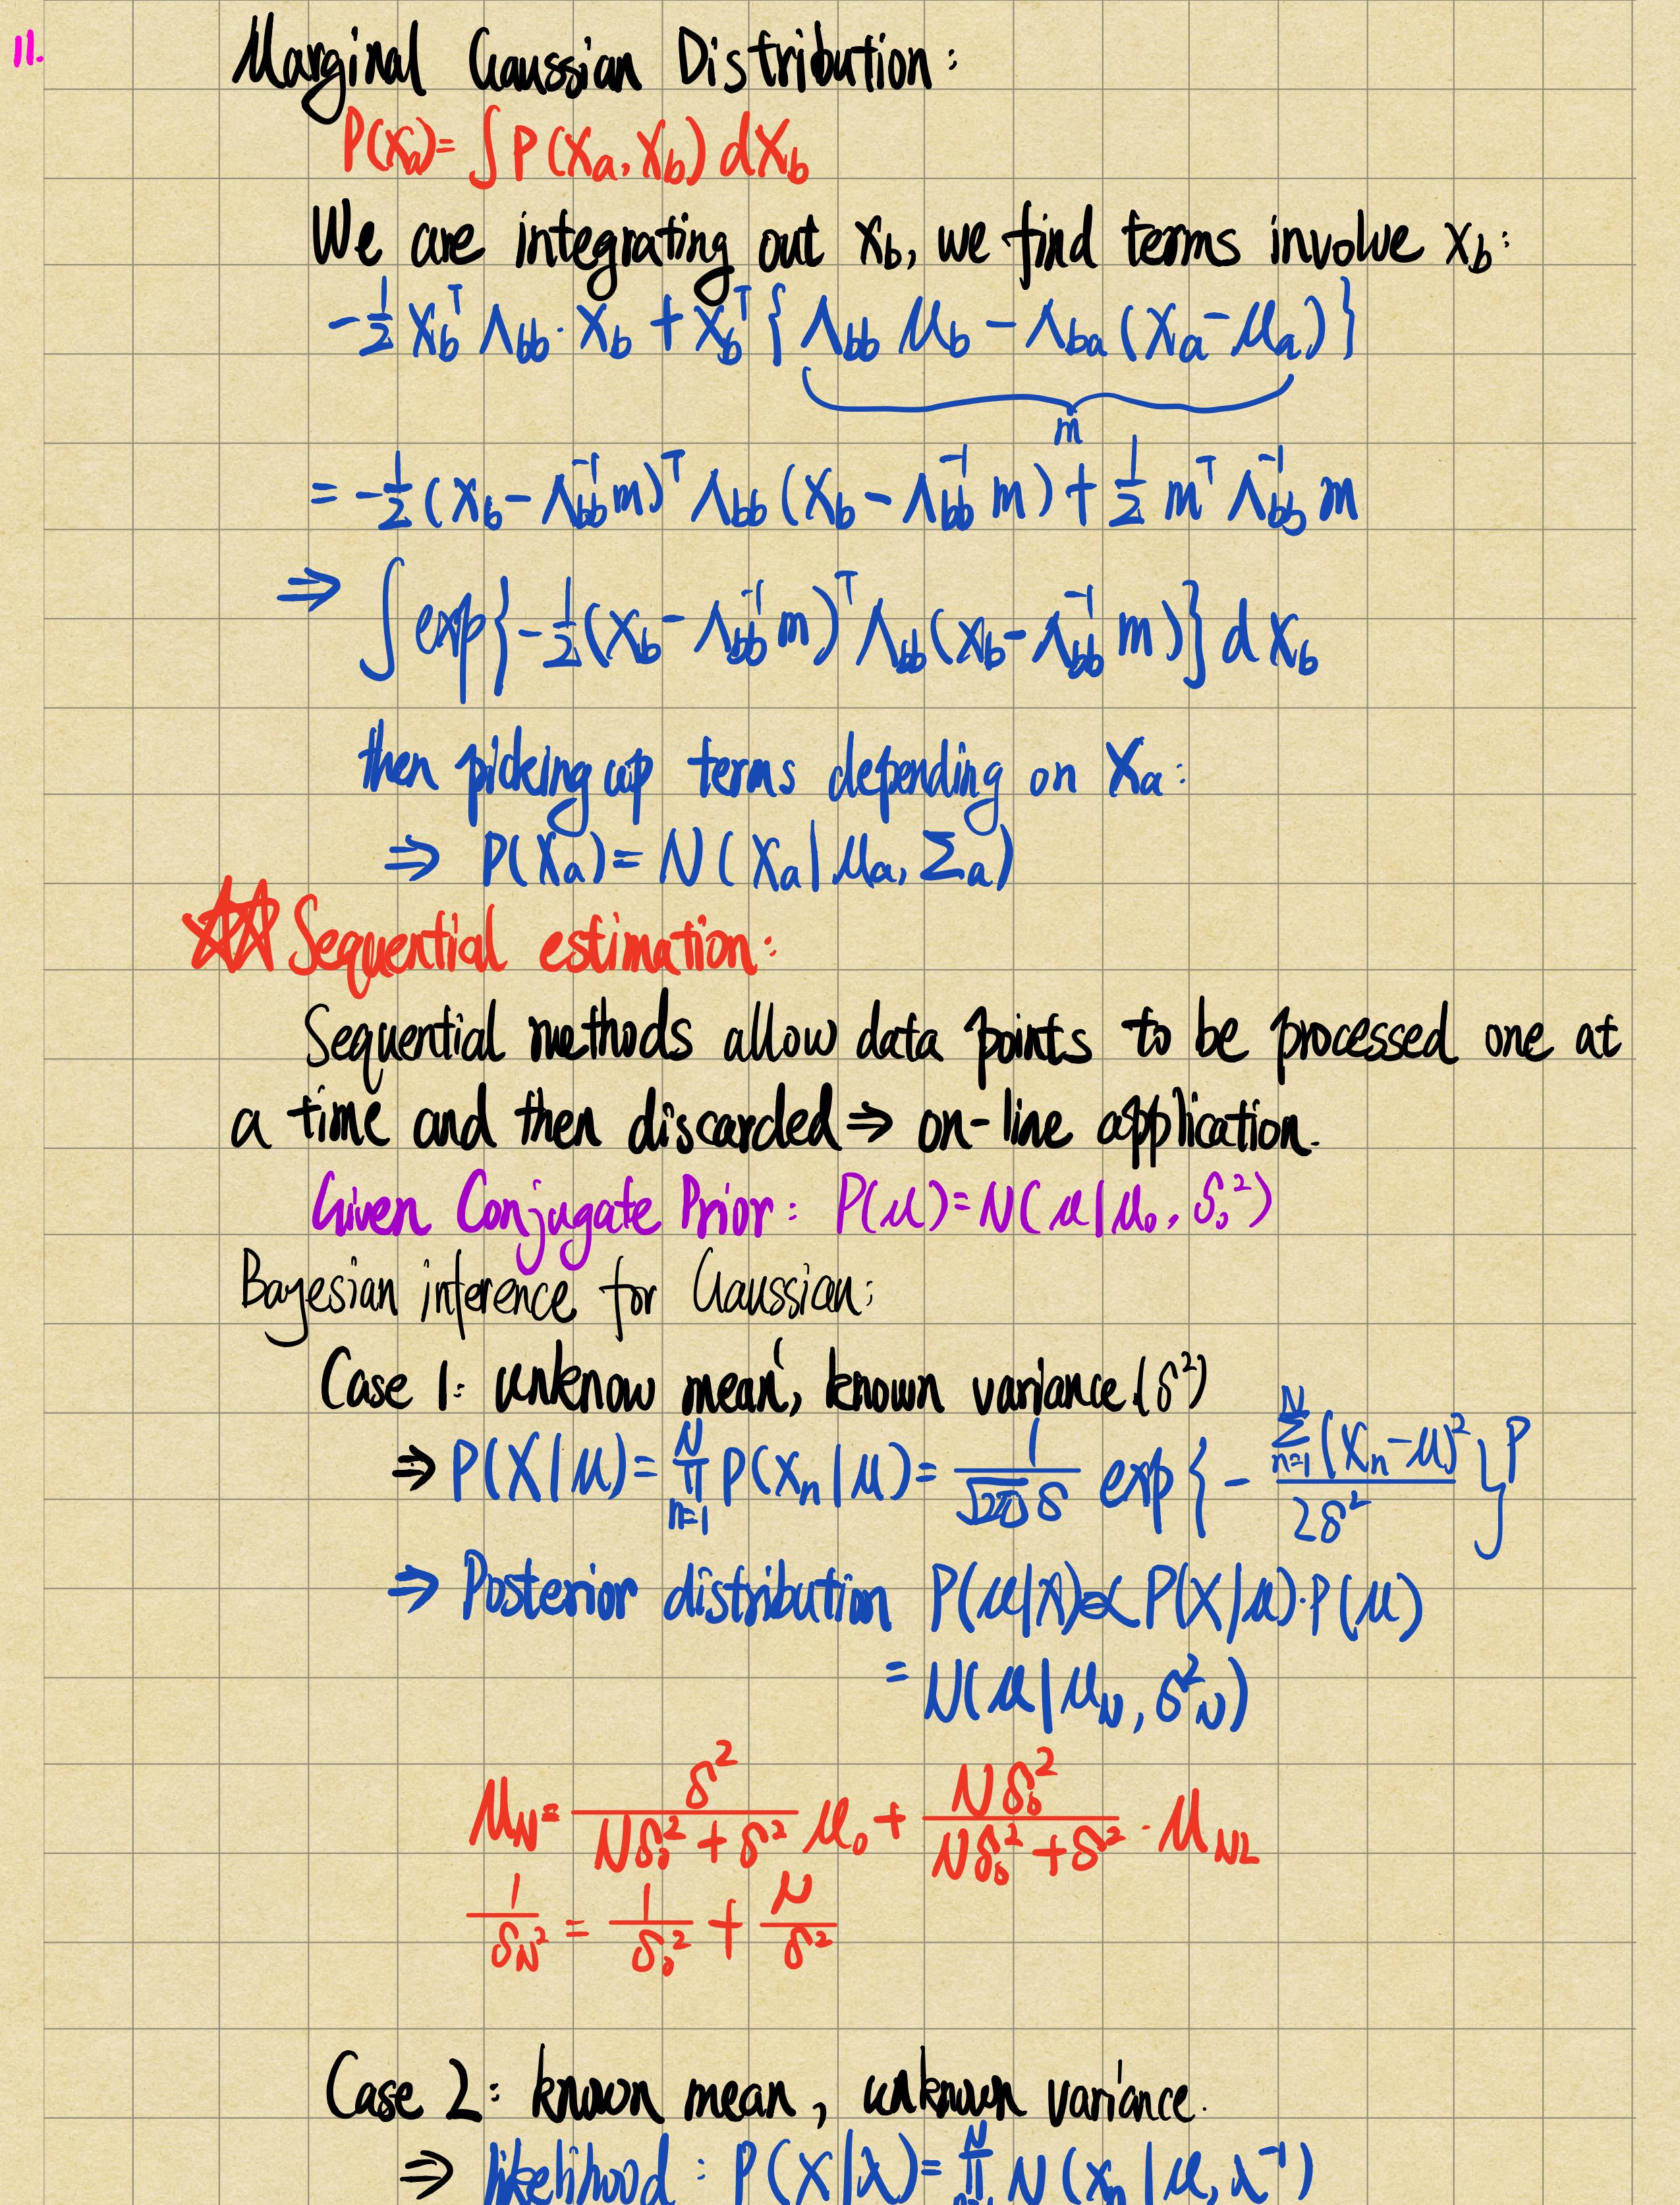 11.
Marginal Gaussian Distribution:
P(Xa)= ∫ P(Xa, Xb) dXb
We are integrating out Xb, we find terms involve Xb:
-1/2 Xb^T Λbb · Xb + Xb^T { Λbb μb - Λba (Xa - μa) }
m
= -1/2 (Xb - Λbb^-1 m)^T Λbb (Xb - Λbb^-1 m) + 1/2 m^T Λbb^-1 m
⇒ ∫ exp{ -1/2 (Xb - Λbb^-1 m)^T Λbb (Xb - Λbb^-1 m) } d Xb
then picking up terms depending on Xa:
⇒ P(Xa) = N ( Xa | μa, Σa)
☆☆ Sequential estimation:
Sequential methods allow data points to be processed one at
a time and then discarded ⇒ on-line application.
Given Conjugate Prior: P(μ)=N(μ|μ0, δ0^2)
Bayesian inference for Gaussian:
Case 1: unknow mean, known variance.(δ^2)
⇒ P(X|μ)= ∏_{n=1}^{N} P(xn|μ)= 1/(√(2π) δ) exp { - Σ_{n=1}^{N} (xn-μ)^2 / 2δ^2 } P
⇒ Posterior distribution P(μ|X) ∝ P(X|μ)·P(μ)
= N(μ|μN, δ^2N)
μN= δ^2/(Nδ0^2 + δ^2) μ0 + Nδ0^2/(Nδ0^2 + δ^2) · μNL
1/δN^2 = 1/δ0^2 + N/δ^2
Case 2: known mean, unknown variance.
⇒ likelihood: P(X|λ)= ∏^{N} N(xn|μ, λ^-1)